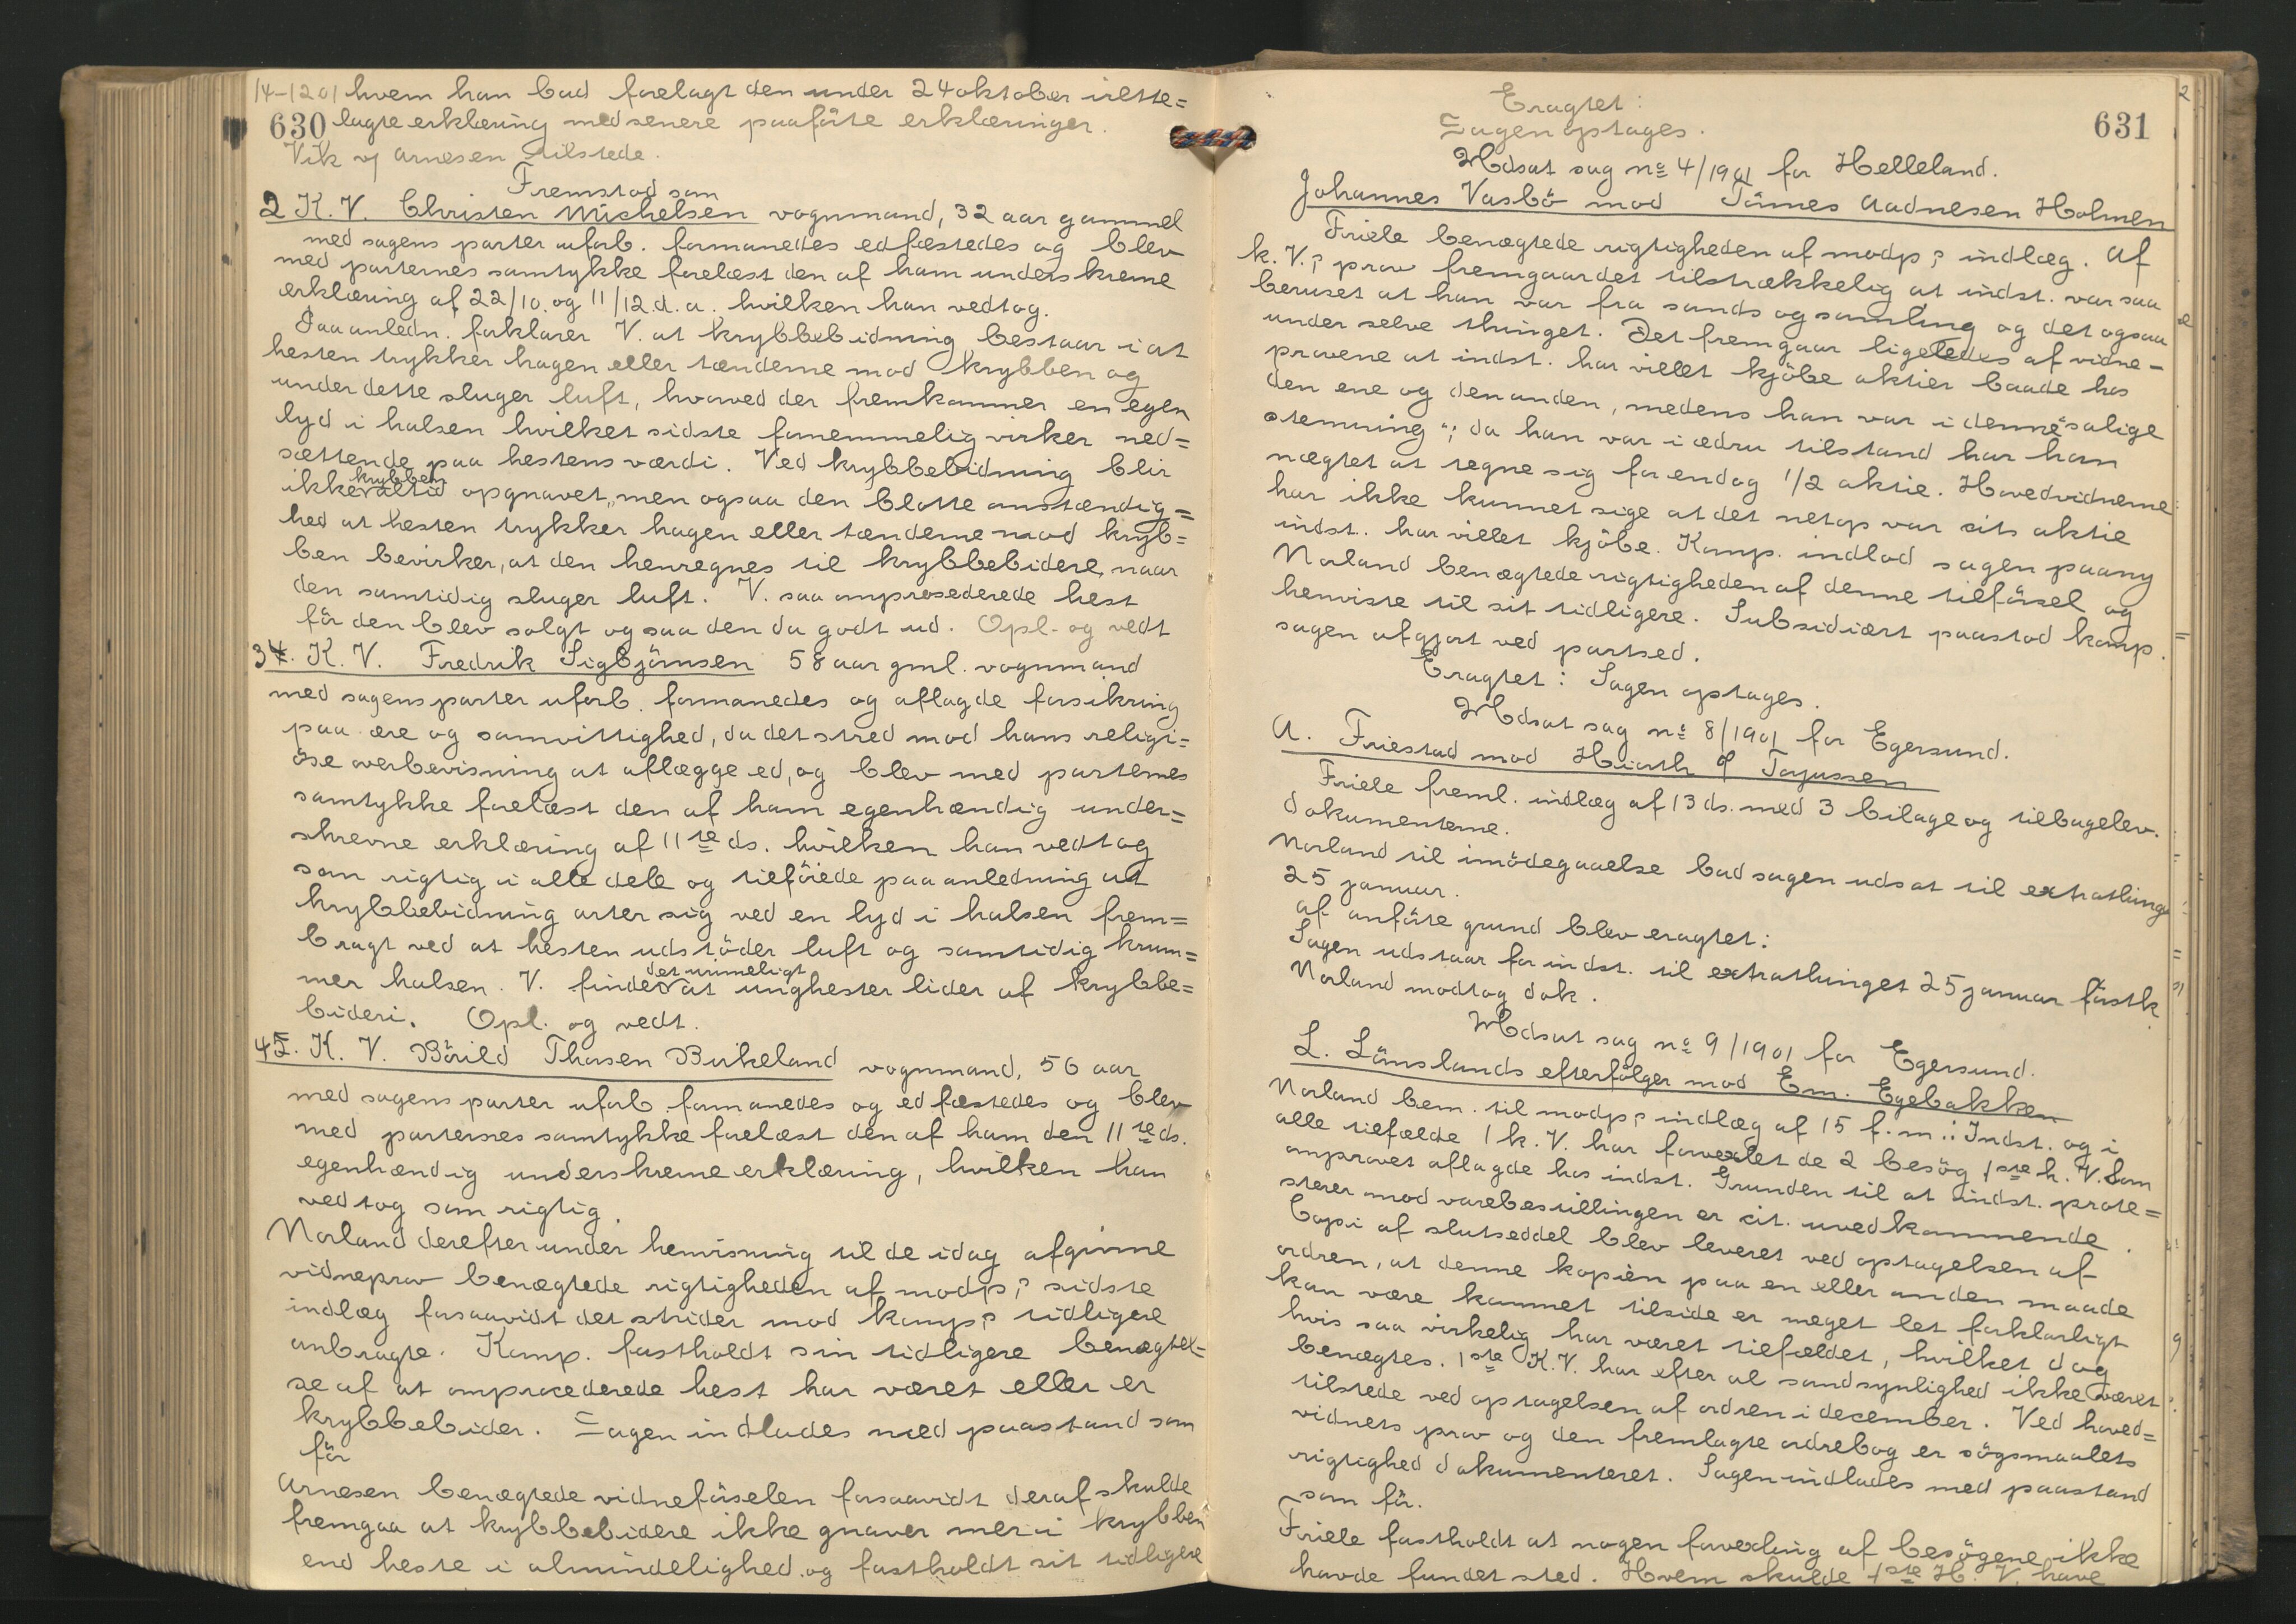 14-1201 hvem han bad forelagt den under 24 oktober irette=
630 lagte erklæring med senere paaførte erklæringer.
Vik og Arnesen tilstede.
Fremstod som
2 K. V. Christen Michelsen vognmand, 32 aar gammel
med sagens parter uforb. formanedes edfæstedes og blev
med parternes samtykke forelæst den af ham underskrevne
erklæring af 22/10. og 11/12. d. a. hvilken han vedtog.
Paa anledn. forklarer V. at krybbebidning bestaar i at
hesten trykker hagen eller tænderne mod krybben og
under dette sluger luft, hvorved der fremkommer en egen
lyd i halsen hvilket sidste fornemmelig virker ned=
sættende paa hestens værdi. Ved krybbebidning blir
krybben
ikke altid opgnavet, men ogsaa den blotte omstændig=
hed at hesten trykker hagen eller tænderne mod kryb=
ben bevirker, at den henregnes til krybbebidere, naar
den samtidig sluger luft. V. saa omprosederede hest
før den blev solgt og saa den da godt ud. Opl. og vedt
34. K. V. Fredrik Sigbjörnsen 58 aar gml. vognmand
med sagens parter uforb. formanedes og aflagde forsikring
paa ære og samvittighed, da det stred mod hans religi=
øse overbevisning at aflægge ed, og blev med parternes
samtykke forelæst den af ham egenhændig under=
skrevne erklæring af 11te ds. hvilken han vedtog
som rigtig i alle dele og tilføiede paa anledning at
krybbebidning arter sig ved en lyd i halsen frem=
bragt ved at hesten udstöder luft og samtidig krum=
det urimeligt
mer halsen. V. finder at unghester lider af krybbe=
bideri. Opl. og vedt.
45. K. V. Bårild Thorsen Birkeland vognmand, 56 aar
med sagens parter uforb. formanedes og edfæstedes og blev
med parternes samtykke forelæst den af ham den 11te ds.
egenhændig underskrevne erklæring, hvilken han
vedtog som rigtig.
Norland derefter under henvisning til de idag afgivne
vidneprov benægtede rigtigheden af modp; sidste
indlæg forsaavidt det strider mod komp; tidligere
anbragte. Komp. fastholdt sin tidligere benægtel=
se af at omprocederede hest har været eller er
krybbebider. Sagen indlades med paastand som
før
Arnesen benægtede vidneførselen forsaavidt deraf skulde
fremgaa at krybbebidere ikke gnaver mer i krybben
end heste i almindelighed og fastholdt sit tidligere
Eragtet:
Sagen optages.
631
Udsat sag no 4/1901 for Helleland.
Johannes Vasbö mod Tönnes Aadnesen Holmen
Friele benægtede rigtigheden af modp; indlæg. Af
k. V.; prov fremgaar det tilstrækkelig at indst. var saa
beruset at han var fra sands og samling og det ogsaa
under selve thinget. Det fremgaar ligeledes af vidne-
provene at indst. har villet kjöbe aktier baade hos
den ene og den anden, medens han var i denne "salige
stemning"; da han var i ædru tilstand har han
nægtet at tegne sig for endog 1/2 aktie. Hovedvidnerne
har ikke kunnet sige at det netop var cits aktie
indst. har villet kjöbe. Komp. indlod sagen paany
Norland benægtede rigtigheden af denne tilförsel og
henviste til sit tidligere. Subsidiært paastod komp.
sagen afgjort ved partsed.
Eragtet: Sagen optages.
Udsat sag no 8/1901 for Egersund.
A. Friestad mod Hiorth & Torjussen
Friele freml. indlæg af 13 ds. med 3 bilage og tilbagelev.
dokumenterne.
Norland til imödegaaelse bad sagen udsat til extrathinge
25 januar.
Af anförte grund blev eragtet:
Sagen udstaar for indst. til extrathinget 25 januar förstk.
Norland modtog dok.
Udsat sag no 9/1901 for Egersund.
L. Lönslands efterfölger mod Em. Egebakken
Norland bem. til modp; indlæg af 15 f. m.: Indst. og i
alle tilfælde 1 k. V. har forvexlet de 2 besög 1ste h. V. som
omprovet aflagde hos indst. Grunden til at indst. prote=
sterer mod varebestillingen er cit. uvedkommende.
Copi af slutseddel blev leveret ved optagelsen af
ordren, at denne kopien paa en eller anden maade
kan være kommet tilside er meget let forklarligt
hvis saa virkelig har været tilfældet, hvilket dog
benægtes. 1ste K. V. har efter al sandsynlighed ikke været
tilstede ved optagelsen af ordren i december. Ved hoved=
vidnets prov og den fremlagte ordrebog er sögsmaalets
rigtighed dokumenteret. Sagen indlades med paastand
som för.
Friele fastholdt at nogen forvexling af besögene ikke
havde fundet sted. Hvem skulde 1ste H. V. have